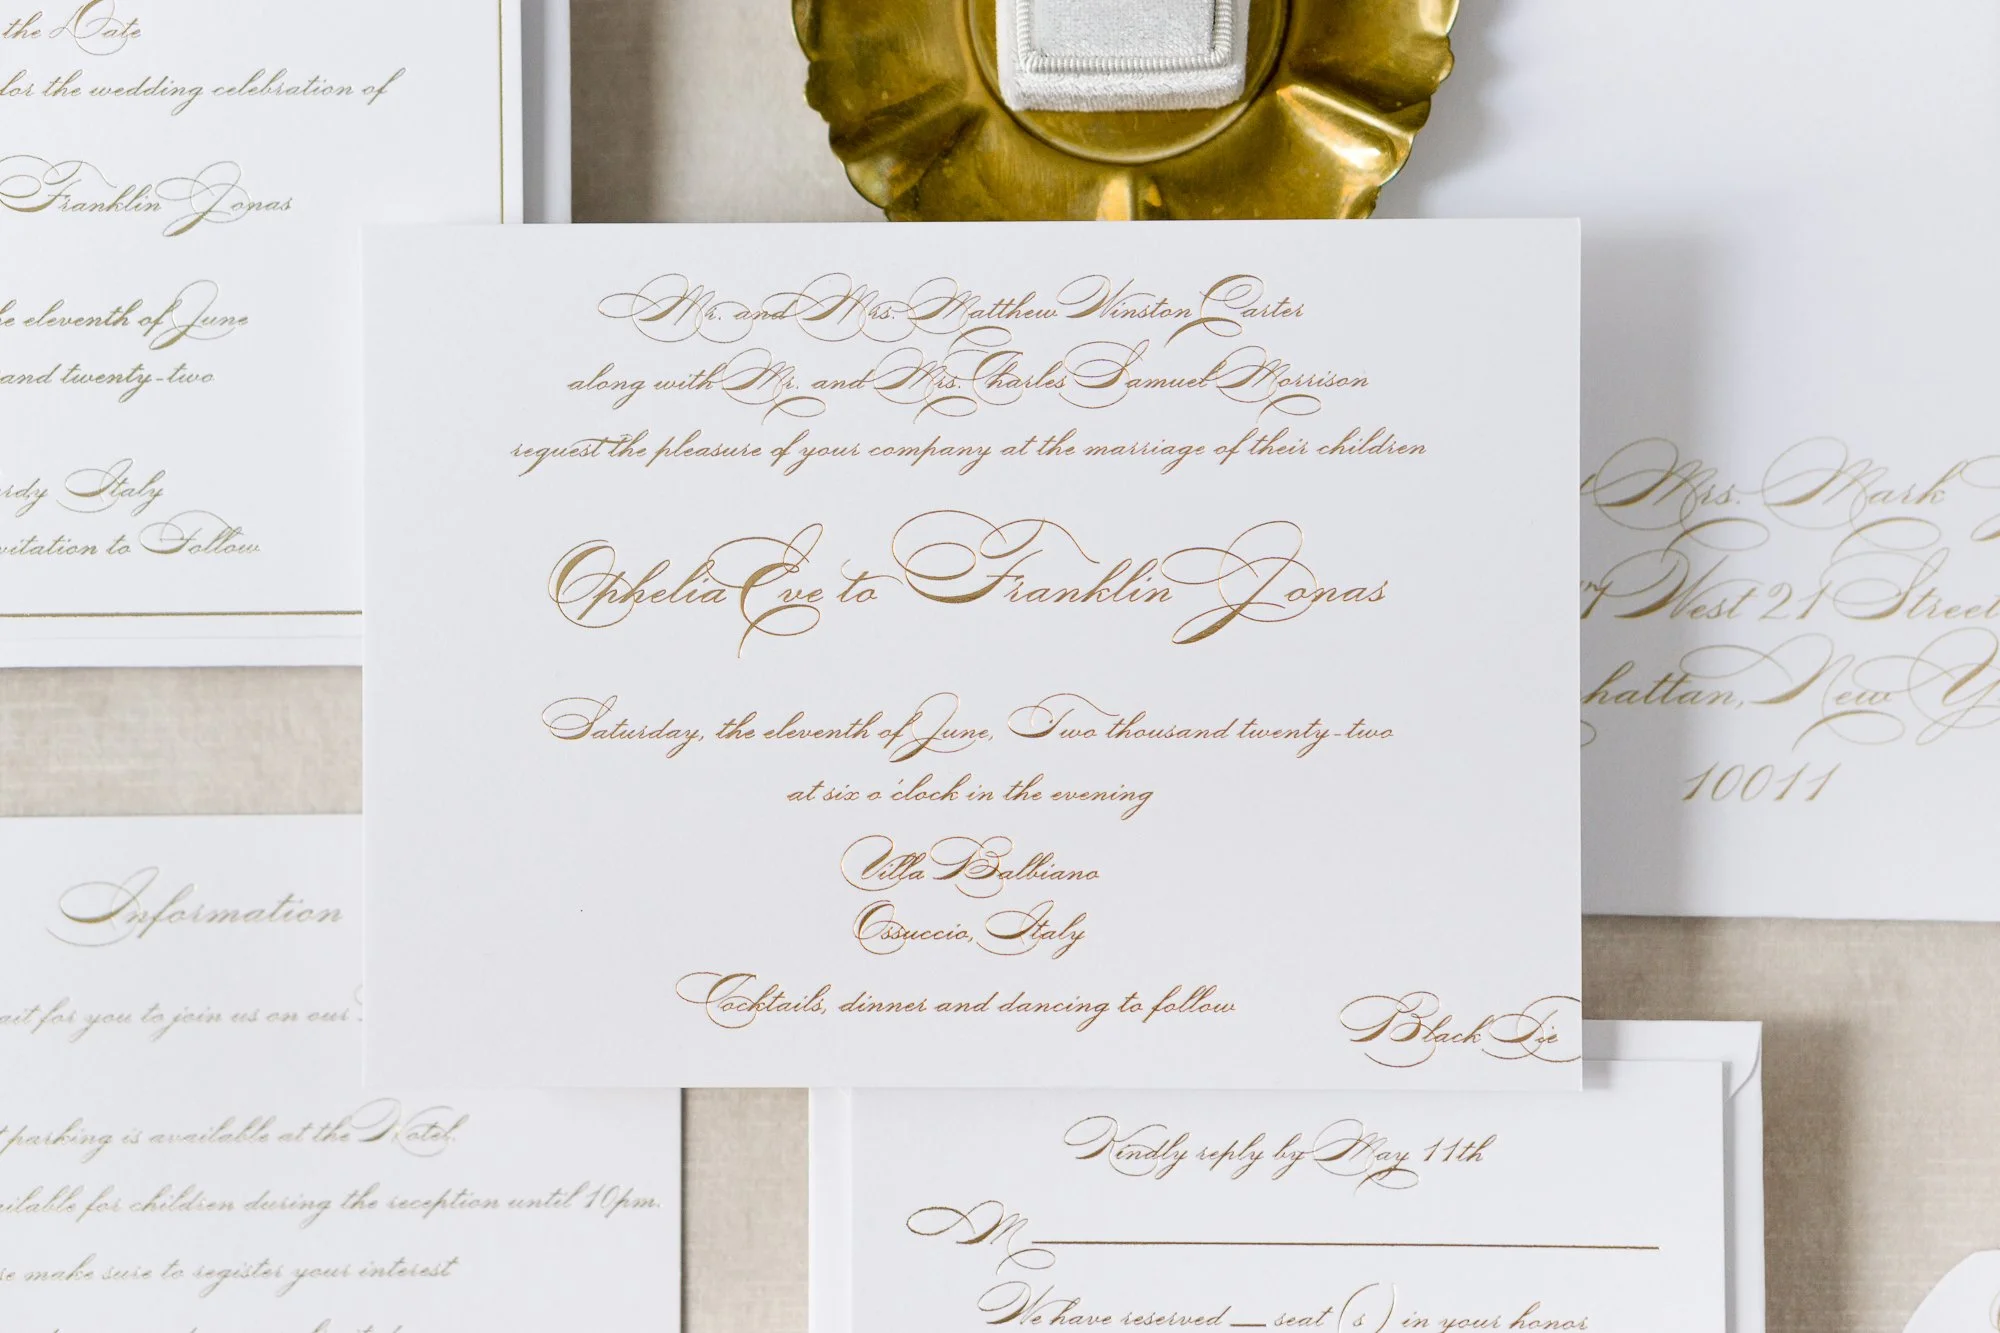 the Date
for the wedding celebration of
Franklin Jonas
eleventh of June
and twenty-two
Italy
to Follow
Mr. and Mrs. Matthew Winston Carter
along with Mr. and Mrs. Charles Samuel Morrison
request the pleasure of your company at the marriage of their children
Ophelia Eve to Franklin Jonas
Saturday, the eleventh of June, Two thousand twenty-two
at six o'clock in the evening
Villa Balbiano
Ossuccio, Italy
Cocktails, dinner and dancing to follow
Black Tie
Mrs. Mark
West 21 Street
hattan, New Y
10011
Information
for you to join us on our
parking is available at the Hotel.
for children during the reception until 10pm.
make sure to register your interest
Kindly reply by May 11th
M
We have reserved __ seat (s) in your honor